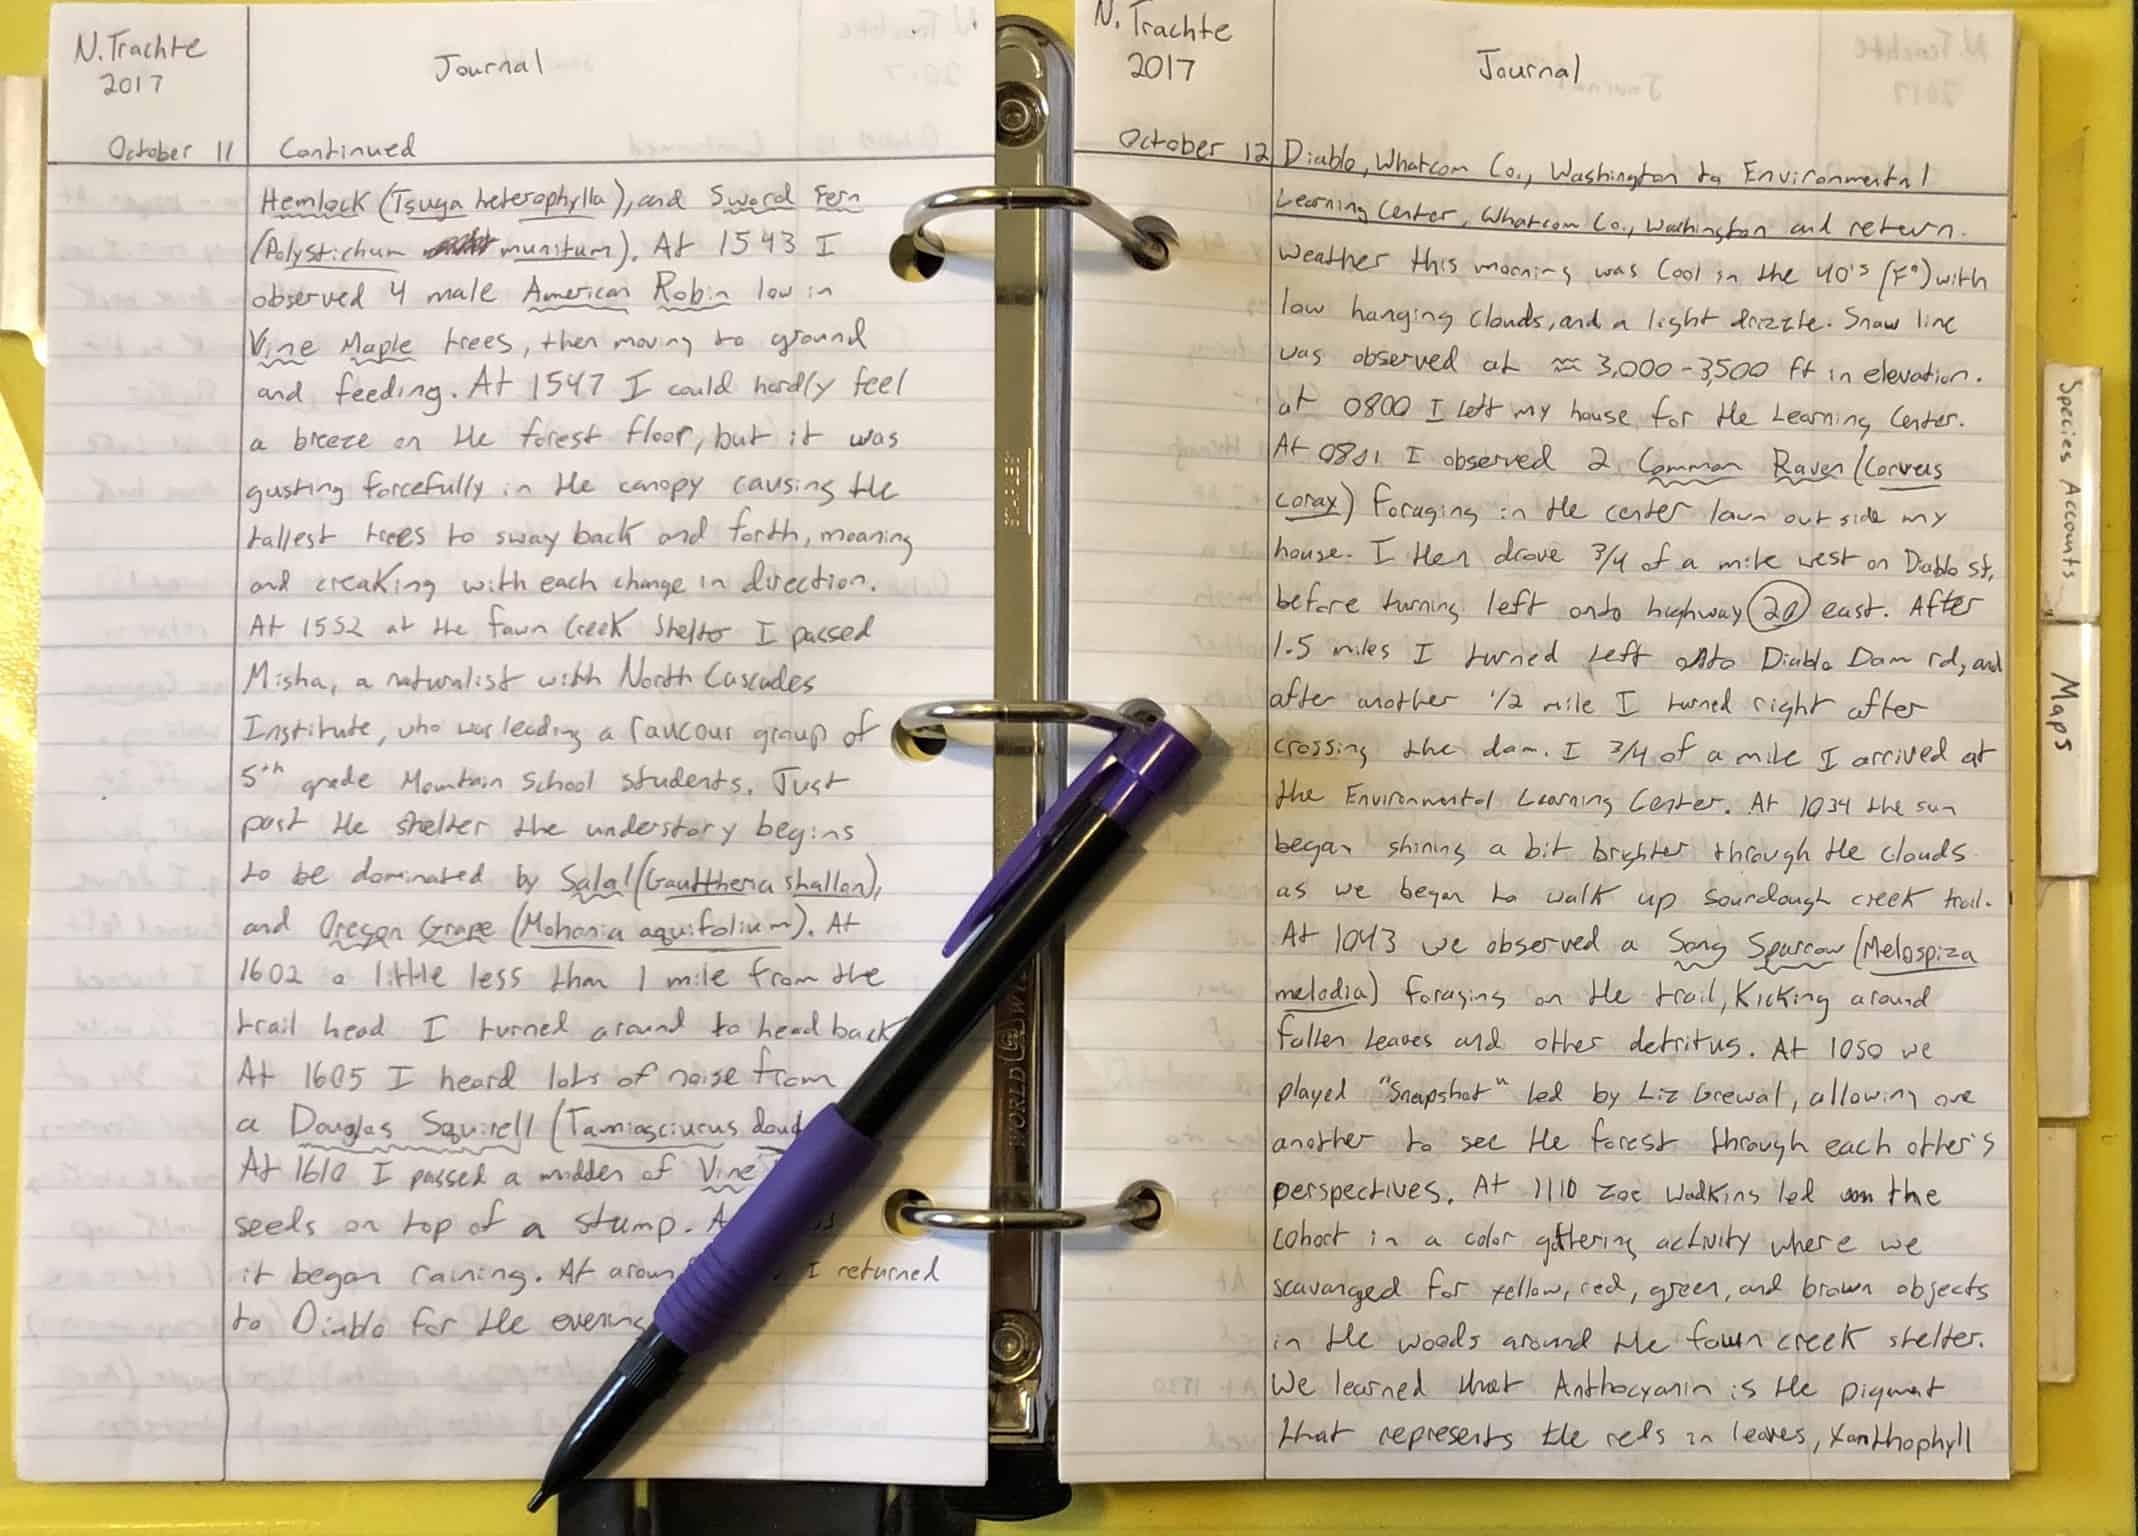 N. Trachte
2017
Journal
October 11
Continued
Hemlock (Tsuga heterophylla), and Sword Fern
(Polystichum munitum). At 1543 I
observed 4 male American Robin low in
Vine Maple trees, then moving to ground
and feeding. At 1547 I could hardly feel
a breeze on the forest floor, but it was
gusting forcefully in the canopy causing the
tallest trees to sway back and forth, moaning
and creaking with each change in direction.
At 1552 at the fawn Creek Shelter I passed
Misha, a naturalist with North Cascades
Institute, who was leading a raucous group of
5th grade Mountain School students. Just
past the shelter the understory begins
to be dominated by Salal (Gaultheria shallon),
and Oregon Grape (Mahonia aquifolium). At
1602 a little less than 1 mile from the
trail head I turned around to head back
At 1605 I heard lots of noise from
a Douglas Squirell (Tamiasciurus doug
At 1610 I passed a midden of Vine
seeds on top of a stump.
it began raining. At aroun I returned
to Diablo for the evening
N. Trachte
2017
Journal
October 12
Diablo, Whatcom Co., Washington to Environmental
Learning Center, Whatcom Co., Washington and return.
Weather this morning was cool in the 40's (F°) with
low hanging clouds, and a light drizzle. Snow line
was observed at ≈ 3,000-3,500 ft in elevation.
at 0800 I left my house for the Learning Center.
At 0801 I observed 2 Common Raven (Corvus
corax) foraging in the center lawn out side my
house. I then drove 3/4 of a mile west on Diablo st,
before turning left onto highway 20 east. After
1.5 miles I turned left onto Diablo Dam rd, and
after another 1/2 mile I turned right after
crossing the dam. I 3/4 of a mile I arrived at
the Environmental Learning Center. At 1034 the sun
began shining a bit brighter through the clouds
as we began to walk up sourdough creek trail.
At 1043 we observed a Song Sparrow (Melospiza
melodia) foraging on the trail, kicking around
fallen leaves and other detritus. At 1050 we
played "Snapshot" led by Liz Grewal, allowing one
another to see the forest through each other's
perspectives. At 1110 Zoe Wadkins led the
cohort in a color gathering activity where we
scavanged for yellow, red, green, and brown objects
in the woods around the fawn creek shelter.
We learned that Anthocyanin is the pigment
that represents the reds in leaves, Xanthophyll
Species Accounts
Maps
WORLD